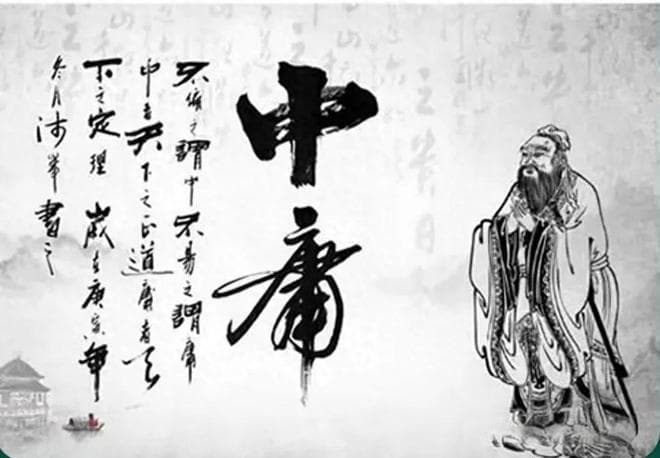 中庸
不偏之謂中不易之謂庸
中者天下之正道庸者天
下之定理歲在庚寅年
冬月書之